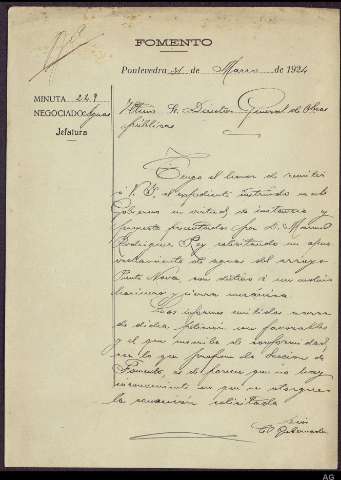 FOMENTO
Pontevedra 31 de Marzo de 1924
MINUTA 229
NEGOCIADO Aguas
Jefatura
Iltmo Sr. Director General de Obras
públicas
Tengo el honor de remitir
a V. I. el expediente instruido en este
Gobierno en virtud de instancia y
proyecto presentados por D. Manuel
Rodriguez Rey solicitando un apro
vechamiento de aguas del arroyo
Ponte Nova, con destino a un molino
harinero y sierra mecánica.
Los informes emitidos acerca
de dicha petición son favorables
y el que suscribe de conformidad
con lo que propone la Sección de
Fomento, es de parecer que no hay
inconveniente en que se otorgue
la concesión solicitada
Dios
El Gobernador
AG